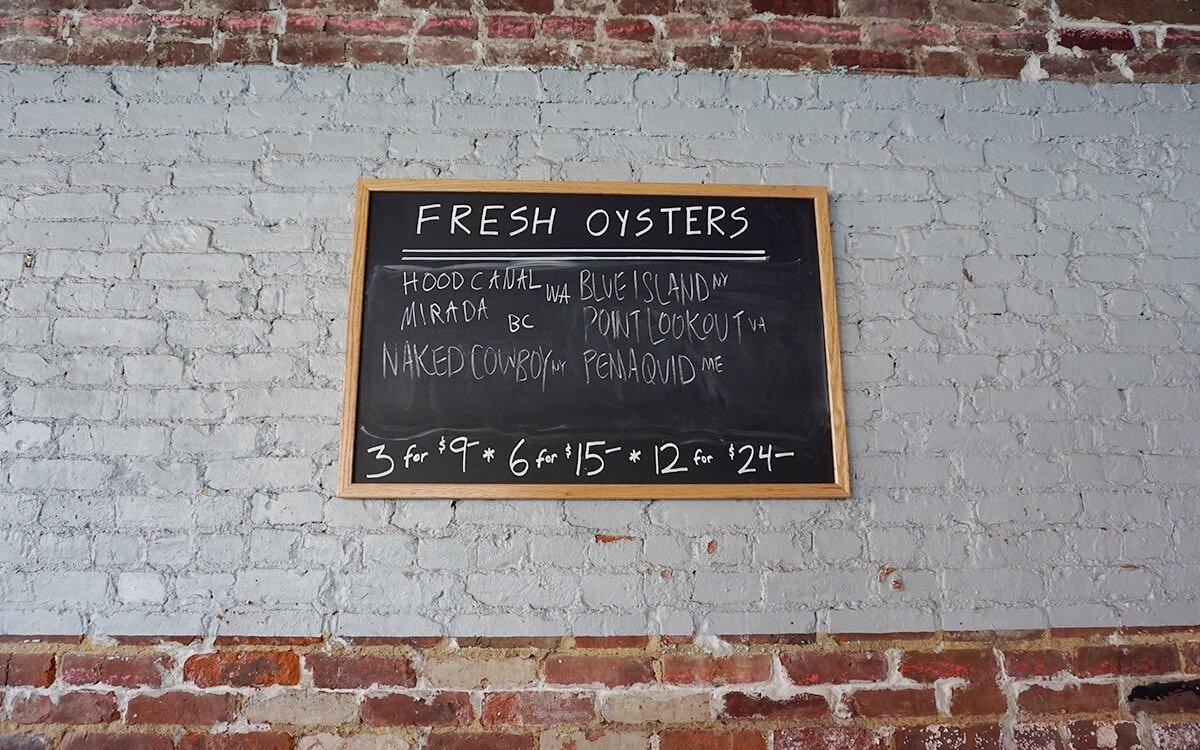 FRESH OYSTERS
HOOD CANAL WA
MIRADA BC
NAKED COWBOY NY
BLUE ISLAND NY
POINT LOOKOUT VA
PEMAQUID ME
3 for $9- * 6 for $15- * 12 for $24-